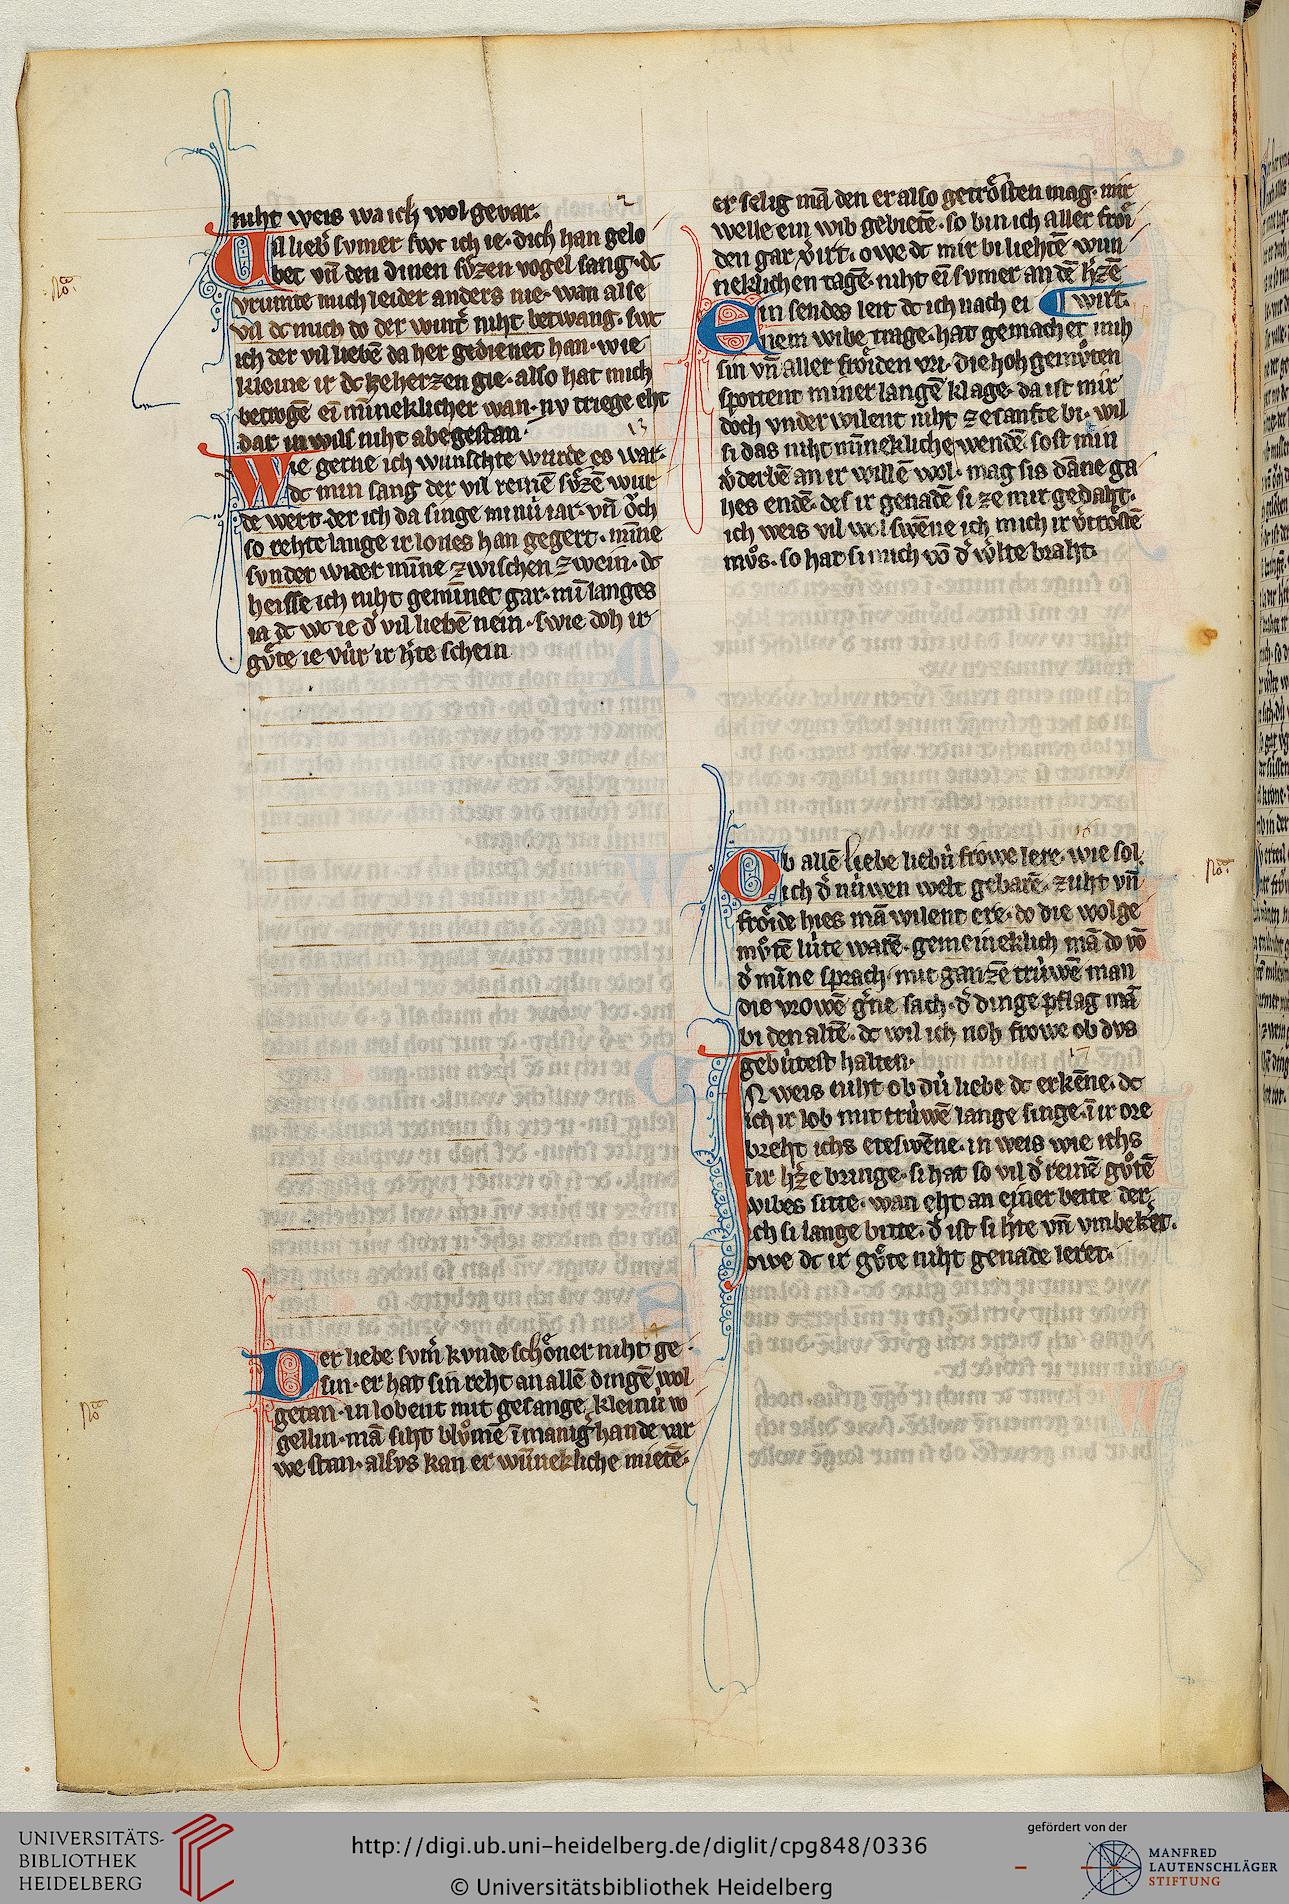 niht weis wa ich wol gevar.
Vil lieb̾ svmer swc ich ie dich han gelo
bet vn̄ den dinen sv̊zen vogel sang. dc
vrumte mich leider anders nie. wan alse
vil dc mich do der wint̾ niht betwang. swc
ich der vil liebē da her gedienet han. wie
kleine ir dc ze herzen gie. also hat mich
betrogē ei m̄ineklicher wan. nv triege eht
dar in wils niht abe gestan.
13
Wie gerne ich wunschte wurde es war.
dc min sang der vil reinē sv̊zē wur
de wert. der ich da singe minú iar. vn̄ ŏch
so rehte lange ir lones han gegert. m̄ine
svnder wider m̄ine zwischen zwein. dc
heisse ich niht gemīnet gar. mī langes
ia dc wc ie d̾ vil liebē nein. swie doh ir
gv̊te ie vúr ir h̾te schein
14
Der liebe svm̾ kvnde schöner niht ge
sin. er hat sin reht an allē dingē wol
getan. in lobent mit gesange kleinú vo
gellin. mā siht blv̊mē ī manig̾ hande var
we stan. alsvs kan er wūnekliche mietē.
er selig mā den er also getrŏsten mag. mir
welle ein wib gebietē. so bin ich aller frŏi
den gar v̾irt. owe dc mir bi liehtē wun
neklichen tagē. niht eī svmer an dē h̾zē
Ein sendes leit dc ich nach ei ¶ wirt.
nem wibe trage. hat gemachet mih
sin vn̄ aller frŏiden vri. die hoh gemv̊ten
spottent miner langē klage. da ist mir
doch vnder wilent niht ze sanfte bi. wil
si das niht m̄inekliche wendē. so st min
v̾derbē an ir willē wol. mag sis dāne ga
hes endē. des ir genadē si ze mir gedaht.
ich weis vil wol swēne ich mich ir v̾trŏstē
mv̊s. so hat si mich vō d̾ w̾lte braht.
16
Ob allē liebe liebú frowe lere. wie sol
ich d̾ núwen welt gebarē. zuht vn̄
frŏide hies mā wilent ere. do die wolge
mv̊tē lúte warē. gemeineklich mā do vō
d̾ m̄ine sprach. mit ganzē trúwē man
die vrowē g̾ne sach. d̾ dinge pflag mā
bi den altē. dc wil ich noh frowe ob dvs
gebútest halten.
17
In weis niht ob dú liebe dc erkēne. dc
ich ir lob mit trúwē lange singe. ī ir ore
breht ichs eteswēne. in weis wie ichs
ī ir h̾ze bringe. si hat so vil d̾ reinē gv̊tē
wibes sitte. wan eht an einer bette der
ich si lange bitte. d̾ ist si h̾te vn̄ vnbekêt.
owe dc ir gv̊te niht genade leret.
UNIVERSITÄTS-
BIBLIOTHEK
HEIDELBERG
http://digi.ub.uni-heidelberg.de/diglit/cpg848/0336
© Universitätsbibliothek Heidelberg
gefördert von der
MANFRED
LAUTENSCHLÄGER
STIFTUNG